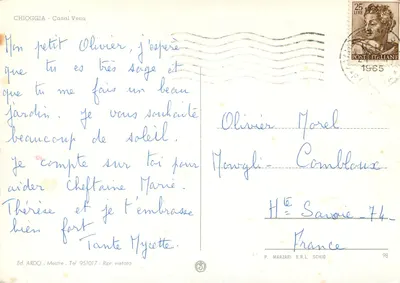 CHIOGGIA - Canal Vena
Mon petit Olivier, j'espère
que tu es très sage et
que tu me fais un beau
jardin. Je vous souhaite
beaucoup de soleil.
Je compte sur toi pour
aider Cheftaine Marie.
Thérèse et je t'embrasse
bien fort
Tante Mycette.
25
LIRE
POSTE ITALIANE
1965
Olivier Morel
Mowgli - Combloux
Hte Savoie - 74 -
France